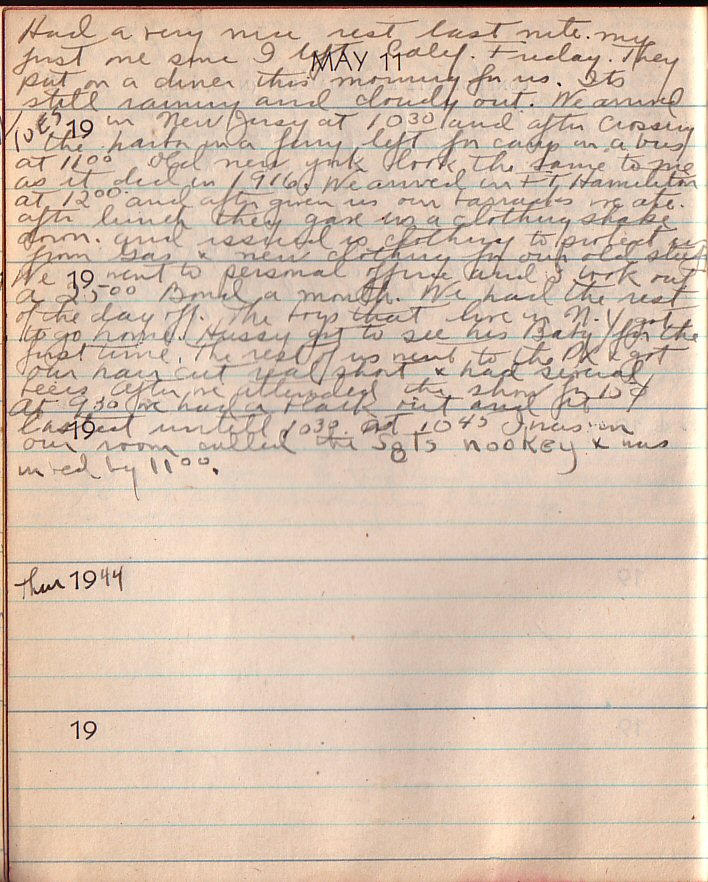 Had a very nice rest last nite. my
first one since I left Calif. Friday. They
MAY 11
put on a diner this morning for us. Its
still rainny and cloudy out. We arrived
19
in New Jersy at 10 30 and after crossing
the harbor in a ferry, left for camp in a bus
at 11 00. Old new york look the same to me
as it did in 1916. We arrived in FT, Hamilton
at 12 00. and after given us our barracks we ate.
after lunch they gave us a clothing shake
down. and issued us clothing to protect us
from gas & new clothing for our old stuff
19
We went to personal office and I took out
a 25 00 Bond a month. We had the rest
of the day off. The boys that live in N.Y got
to go home. Hussy got to see his Baby for the
first time. The rest of us went to the PX & got
our hair cut real short & had several
beers after we attended the show for 15¢
At 9 30 we had a black out and it
lasted untill 10 30. at 10 45 I was in
19
our room called the Sgts nookey & was
in bed by 11 00.
Thur 1944
19